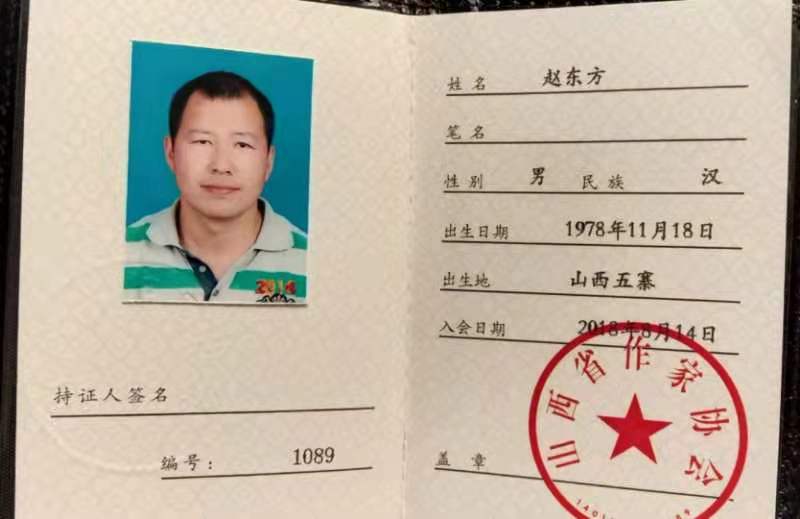 2014
持证人签名
编号： 1089
姓名 赵东方
笔名
性别 男 民族 汉
出生日期 1978年11月18日
出生地 山西五寨
入会日期 2018年8月14日
盖章
山西省作家协会